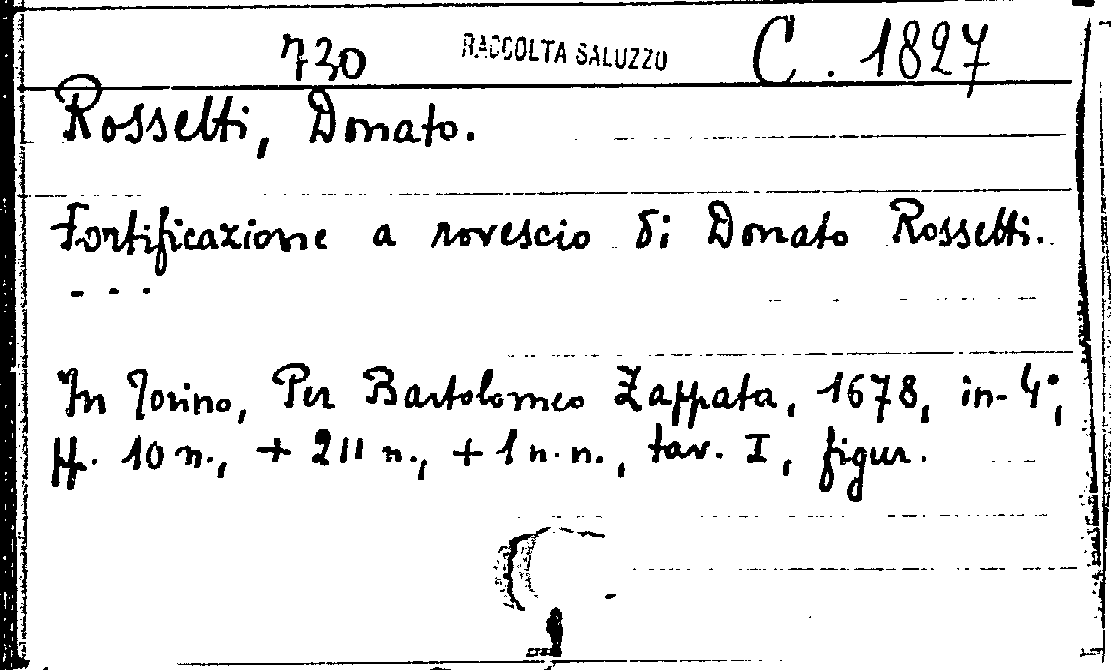 730 RACCOLTA SALUZZO C. 1827
Rossetti, Donato.
Fortificazione a rovescio di Donato Rossetti.
- - -
In Torino, Per Bartolomeo Zappata, 1678, in-4°,
pp. 10 n., + 211 n., + 1 n.n., tav. I, figur.